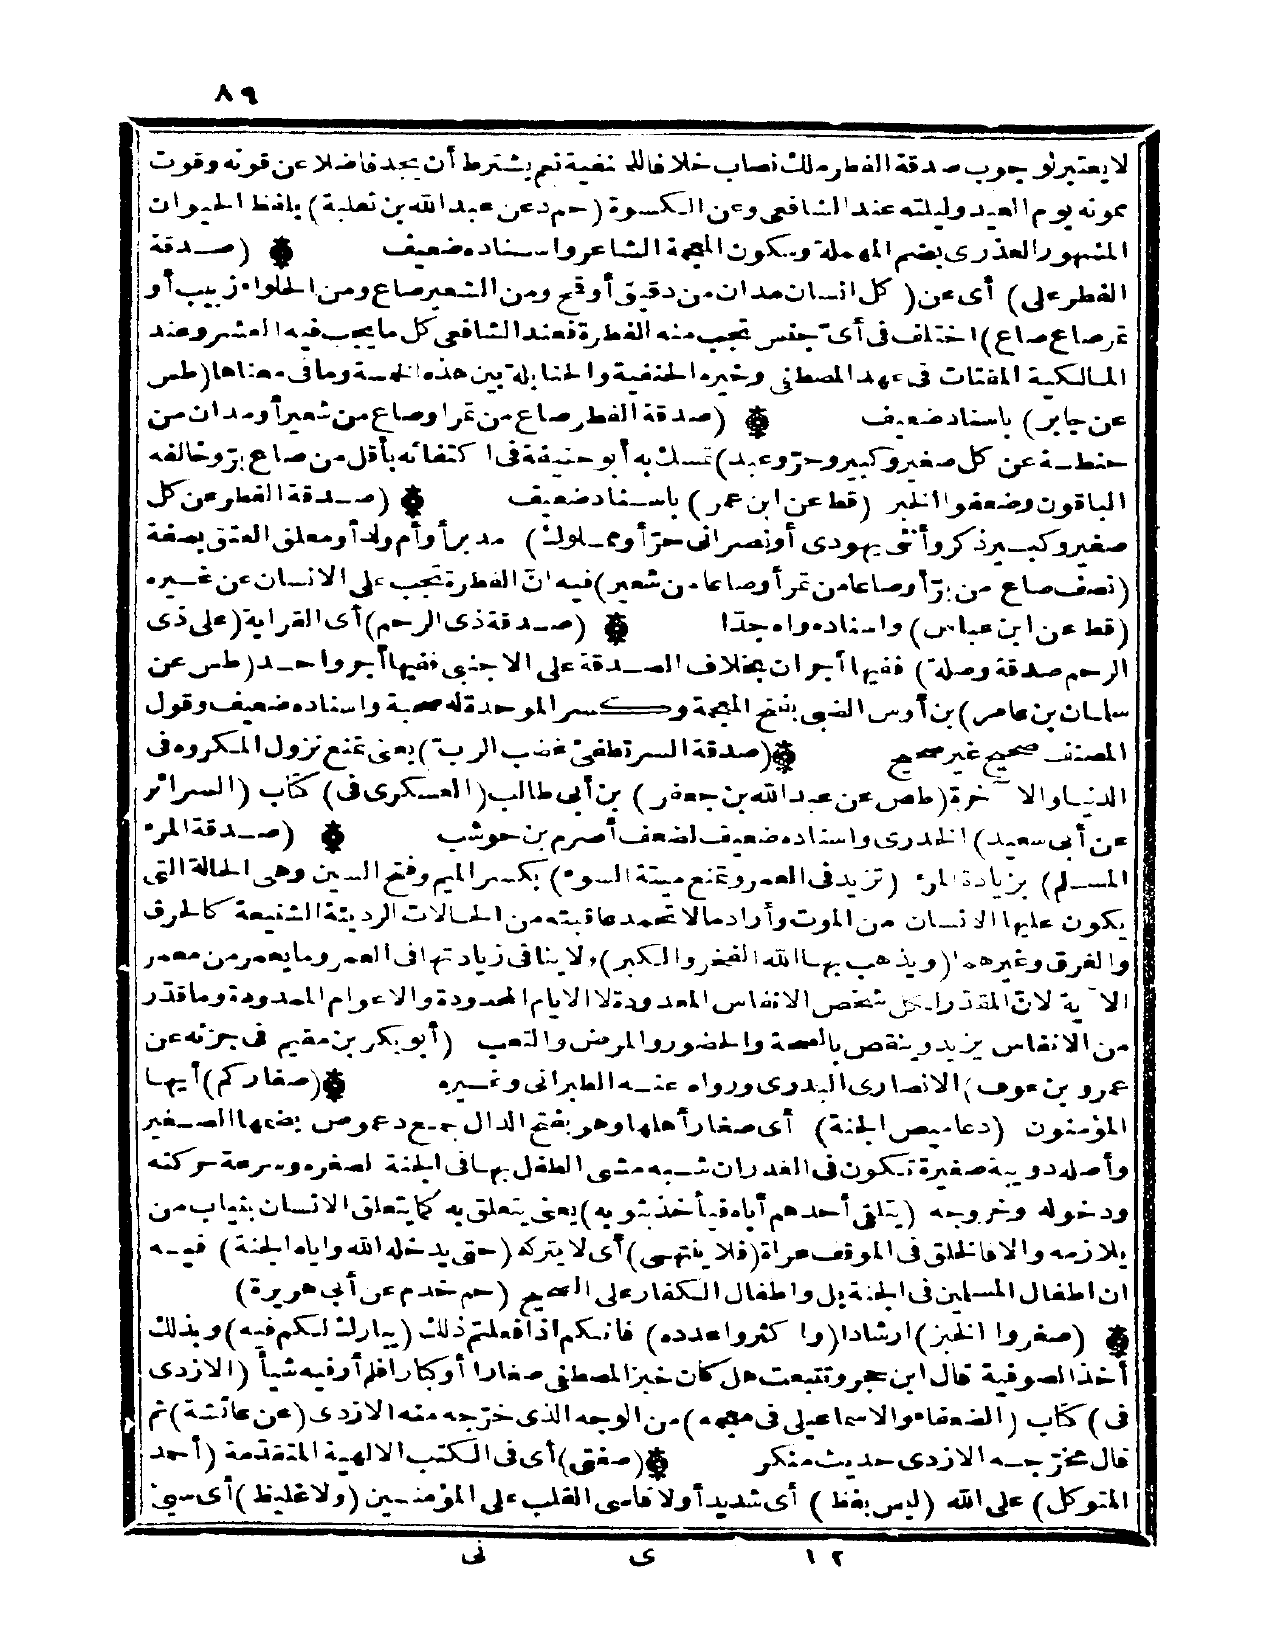 ٨٩
لا يعتبر لوجوب صدقة الفطر ملك نصاب خلافا للحنفية نعم يشترط أن يجد فاضلا عن قوته وقوت
ممونه يوم العيد وليلته عند الشافعي وعن الكسوة (حم د عن عبد الله بن ثعلبة) بلفظ الحيوان
المشهور العذرى بضم المهملة وسكون المعجمة الشاعر واسناده ضعيف ۞ (صدقة
الفطر على) أى عن (كل انسان مدان من دقيق أو قمح ومن الشعير صاع ومن الحلواء زبيب أو
تمر صاع صاع) اختلف فى أى جنس تجب منه الفطرة فعند الشافعى كل ما يجب فيه العشر وعند
المالكية المقتات فى عهد المصطفى وخيره الحنفية والحنابلة بين هذه الخمسة وما فى معناها (طس
عن جابر) باسناد ضعيف ۞ (صدقة الفطر صاع من تمر اوصاع من شعير أو مدان من
حنطة عن كل صغير وكبير وحر وعبد) تمسك به أبو حنيفة فى اكتفائه بأقل من صاع بر وخالفه
الباقون وضعفوا الخبر (قط عن ابن عمر) باسناد ضعيف ۞ (صدقة الفطر عن كل
صغير وكبير ذكر وأنثى يهودى أو نصرانى حر أو مملوك) مدبر أو أم ولد أو معلق العتق بصفة
(نصف صاع من بر أو صاعا من تمر أو صاعا من شعير) فيه ان الفطرة تجب على الانسان عن غيره
(قط عن ابن عباس) واسناده واه جدا ۞ (صدقة ذى الرحم) أى القرابة (على ذى
الرحم صدقة وصلة) ففيها أجران بخلاف الصدقة على الاجنبى ففيها أجر واحد (طس عن
سلمان بن عامر) بن أوس الضبى بفتح المعجمة وكسر الموحدة له صحبة واسناده ضعيف وقول
المصنف صحيح غير صحيح ۞ (صدقة السر تطفئ غضب الرب) يعنى تمنع نزول المكروه فى
الدنيا والآخرة (طص عن عبد الله بن جعفر) بن أبى طالب (العسكرى فى) كتاب (السرائر
عن أبى سعيد) الخدرى واسناده ضعيف لضعف أصرم بن حوشب ۞ (صدقة المرء
المسلم) بزيادة المرء (تزيد فى العمر وتمنع ميتة السوء) بكسر الميم وفتح السين وهى الحالة التى
يكون عليها الانسان من الموت وأراد مالا تحمد عاقبته من الحالات الرديئة الشنيعة كالحرق
والغرق وغيرهما (ويذهب بها الله الفخر والكبر) ولا ينافى زيادتها فى العمر وما يعمر من معمر
الآية لان المقدر لكل شخص الانفاس المعدودة لا الايام المحدودة والاعوام الممدودة وما قدر
من الانفاس يزيد وينقص بالصحة والحضور والمرض والتعب (أبو بكر بن مقيم فى جزئه عن
عمرو بن عوف) الانصارى البدرى ورواه عنه الطبرانى وغيره ۞ (صغاركم) أيها
المؤمنون (دعاميص الجنة) أى صغار أهلها وهو بفتح الدال جمع دعموص بضمها الصغير
وأصله دويبة صغيرة تكون فى الغدران شبه مشى الطفل بها فى الجنة لصغره وسرعة حركته
ودخوله وخروجه (يتلقى أحدهم أباه فيأخذ بثوبه) يعنى يتعلق به كما يتعلق الانسان بثياب من
يلازمه والا فالخلق فى الموقف عراة (فلا ينتهى) أى لا يتركه (حتى يدخله الله واياه الجنة) فيه
ان اطفال المسلمين فى الجنة بل واطفال الكفار على الصحيح (حم خد م عن أبى هريرة)
۞ (صغروا الخبز) ارشادا (واكثروا عدده) فانكم اذا فعلتم ذلك (يبارك لكم فيه) وبذلك
أخذ الصوفية قال ابن حجر وتتبعت هل كان خبز المصطفى صغارا أو كبارا فلم أر فيه شيأ (الازدى
فى) كتاب (الضعفاء والاسماعيلى فى معجمه) من الوجه الذى خرجه منه الازدى (عن عائشة) ثم
قال مخرجه الازدى حديث منكر ۞ (صفتى) أى فى الكتب الالهية المتقدمة (أحمد
المتوكل) على الله (ليس بفظ) أى شديد أو لا قاسى القلب على المؤمنين (ولا غليظ) أى سيئ
١٢ ى نى